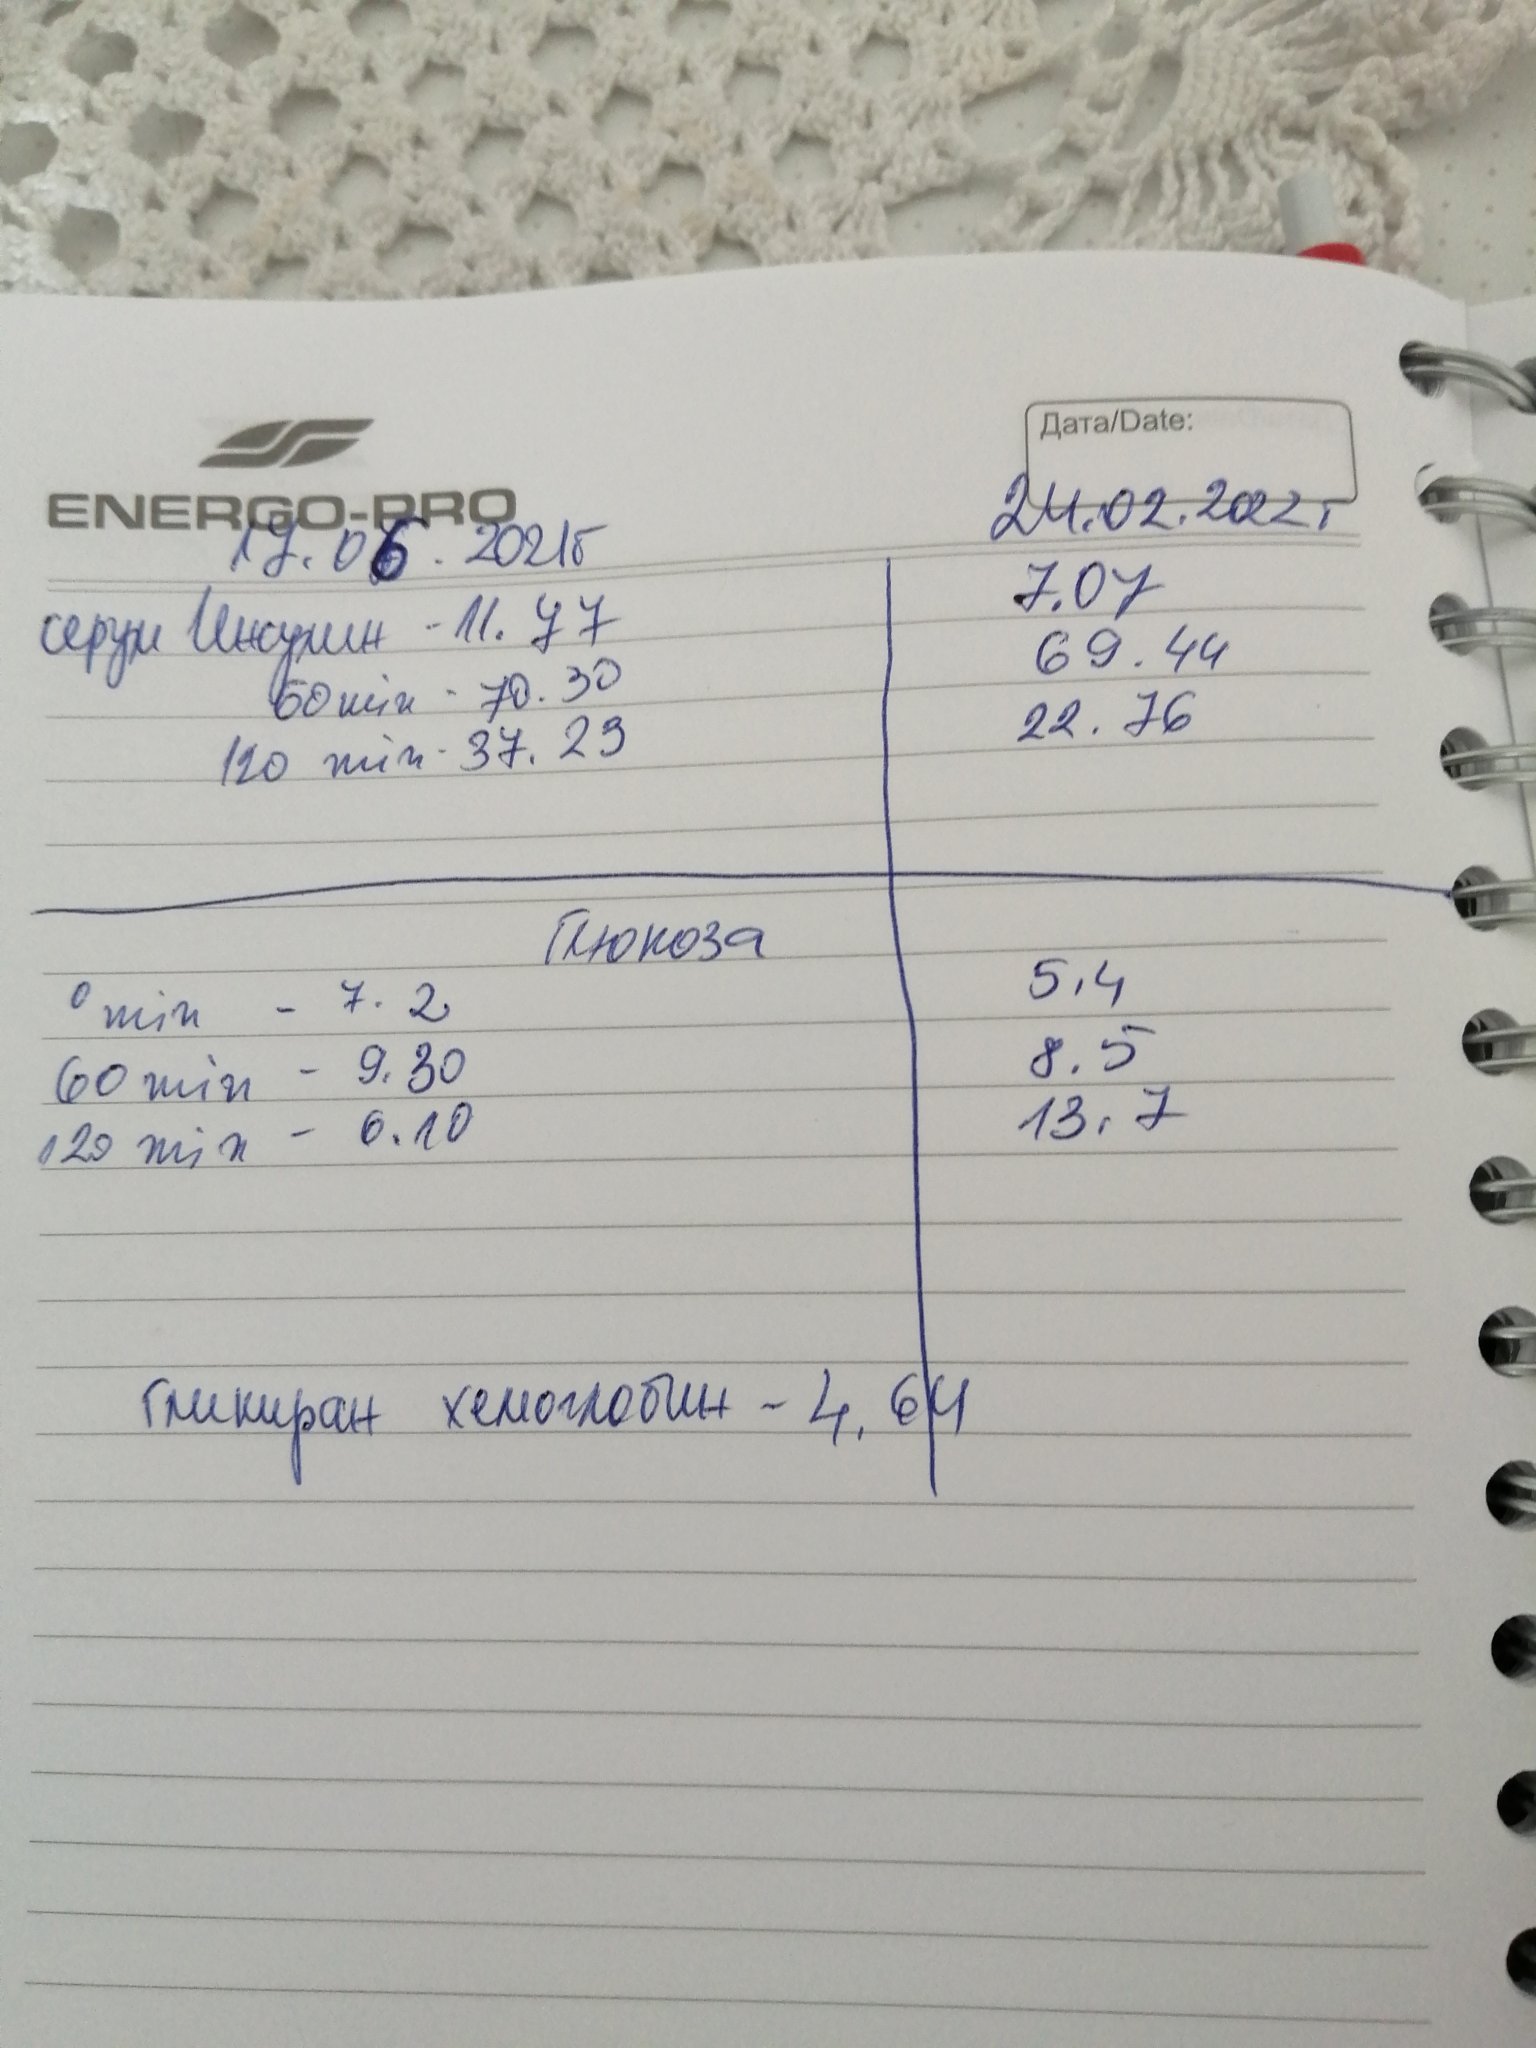 Дата/Date:
ENERGO-PRO
17.06.2021г
24.02.2022г
серум Инсулин - 11.77
7.07
60 min - 70.30
69.44
120 min - 37.29
22.76
Глюкоза
0 min - 7.2
5.4
60 min - 9.30
8.5
120 min - 6.10
13.7
Гликиран хемоглобин - 4.64